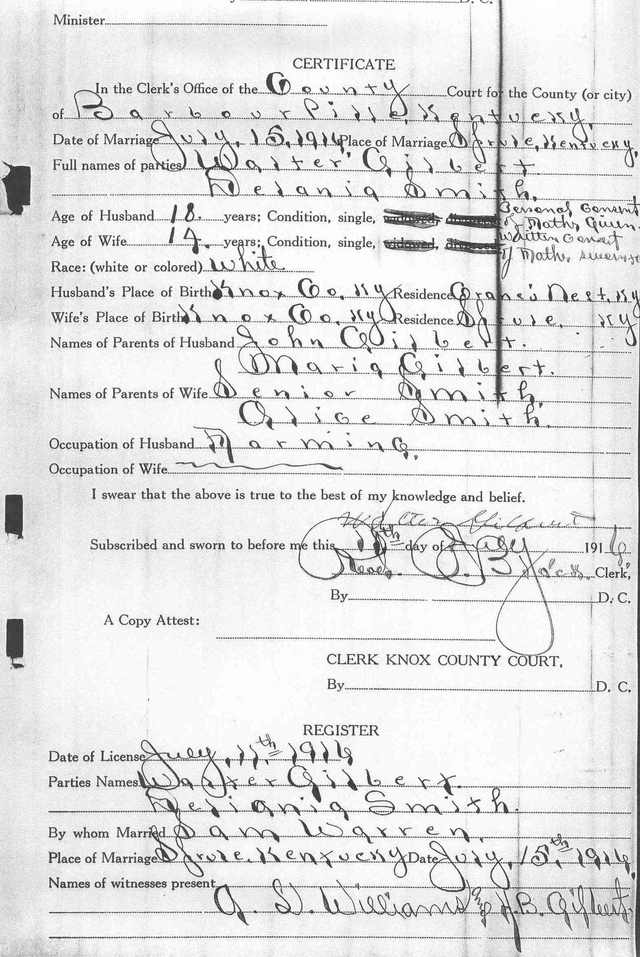 D. C.
Minister
CERTIFICATE
In the Clerk's Office of the County Court for the County (or city)
of Barbourville, Kentucky,
Date of Marriage July, 15, 1916 Place of Marriage Kentucky,
Full names of parties Walter Gilbert
Smith.
Age of Husband 18. years; Condition, single, Personal Consent
of Moth. Given.
Age of Wife 14. years; Condition, single, Written Consent
of Moth.
Race: (white or colored) White
Husband's Place of Birth Knox Co, Ky Residence Crane's Nest, Ky
Wife's Place of Birth Knox Co, Ky Residence Ky
Names of Parents of Husband John Gilbert.
Maria Gilbert.
Names of Parents of Wife Senior Smith,
Alice Smith.
Occupation of Husband Farming.
Occupation of Wife
I swear that the above is true to the best of my knowledge and belief.
Walter Gilbert
Subscribed and sworn to before me this 11th day of July 1916
Read J. B. Clerk,
By D. C.
A Copy Attest:
CLERK KNOX COUNTY COURT,
By D. C.
REGISTER
Date of License July, 11th 1916
Parties Names Walter Gilbert.
Smith.
By whom Married Sam Warren.
Place of Marriage Kentucky Date July, 15th, 1916,
Names of witnesses present
Williams and J. B. Gilbert